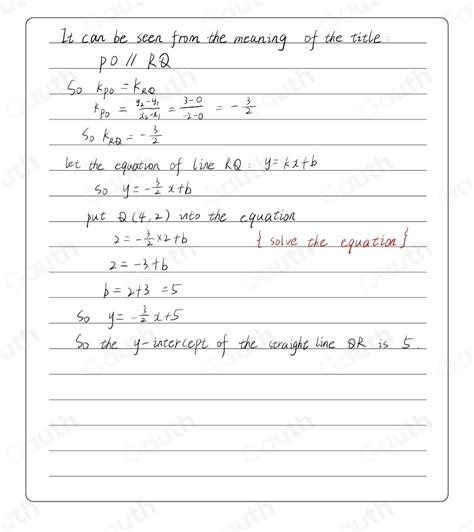 It can be seen from the meaning of the title:
PO // RQ
So k_PO = k_RQ
k_PO = (y₂-y₁)/(x₂-x₁) = (3-0)/(-2-0) = -3/2
So k_RQ = -3/2
let the equation of line RQ: y=kx+b
so y=-3/2 x+b
put Q(4,2) into the equation
2=-3/2×2+b {solve the equation}
2=-3+b
b=2+3 =5
So y=-3/2 x+5
So the y-intercept of the straight line QR is 5.